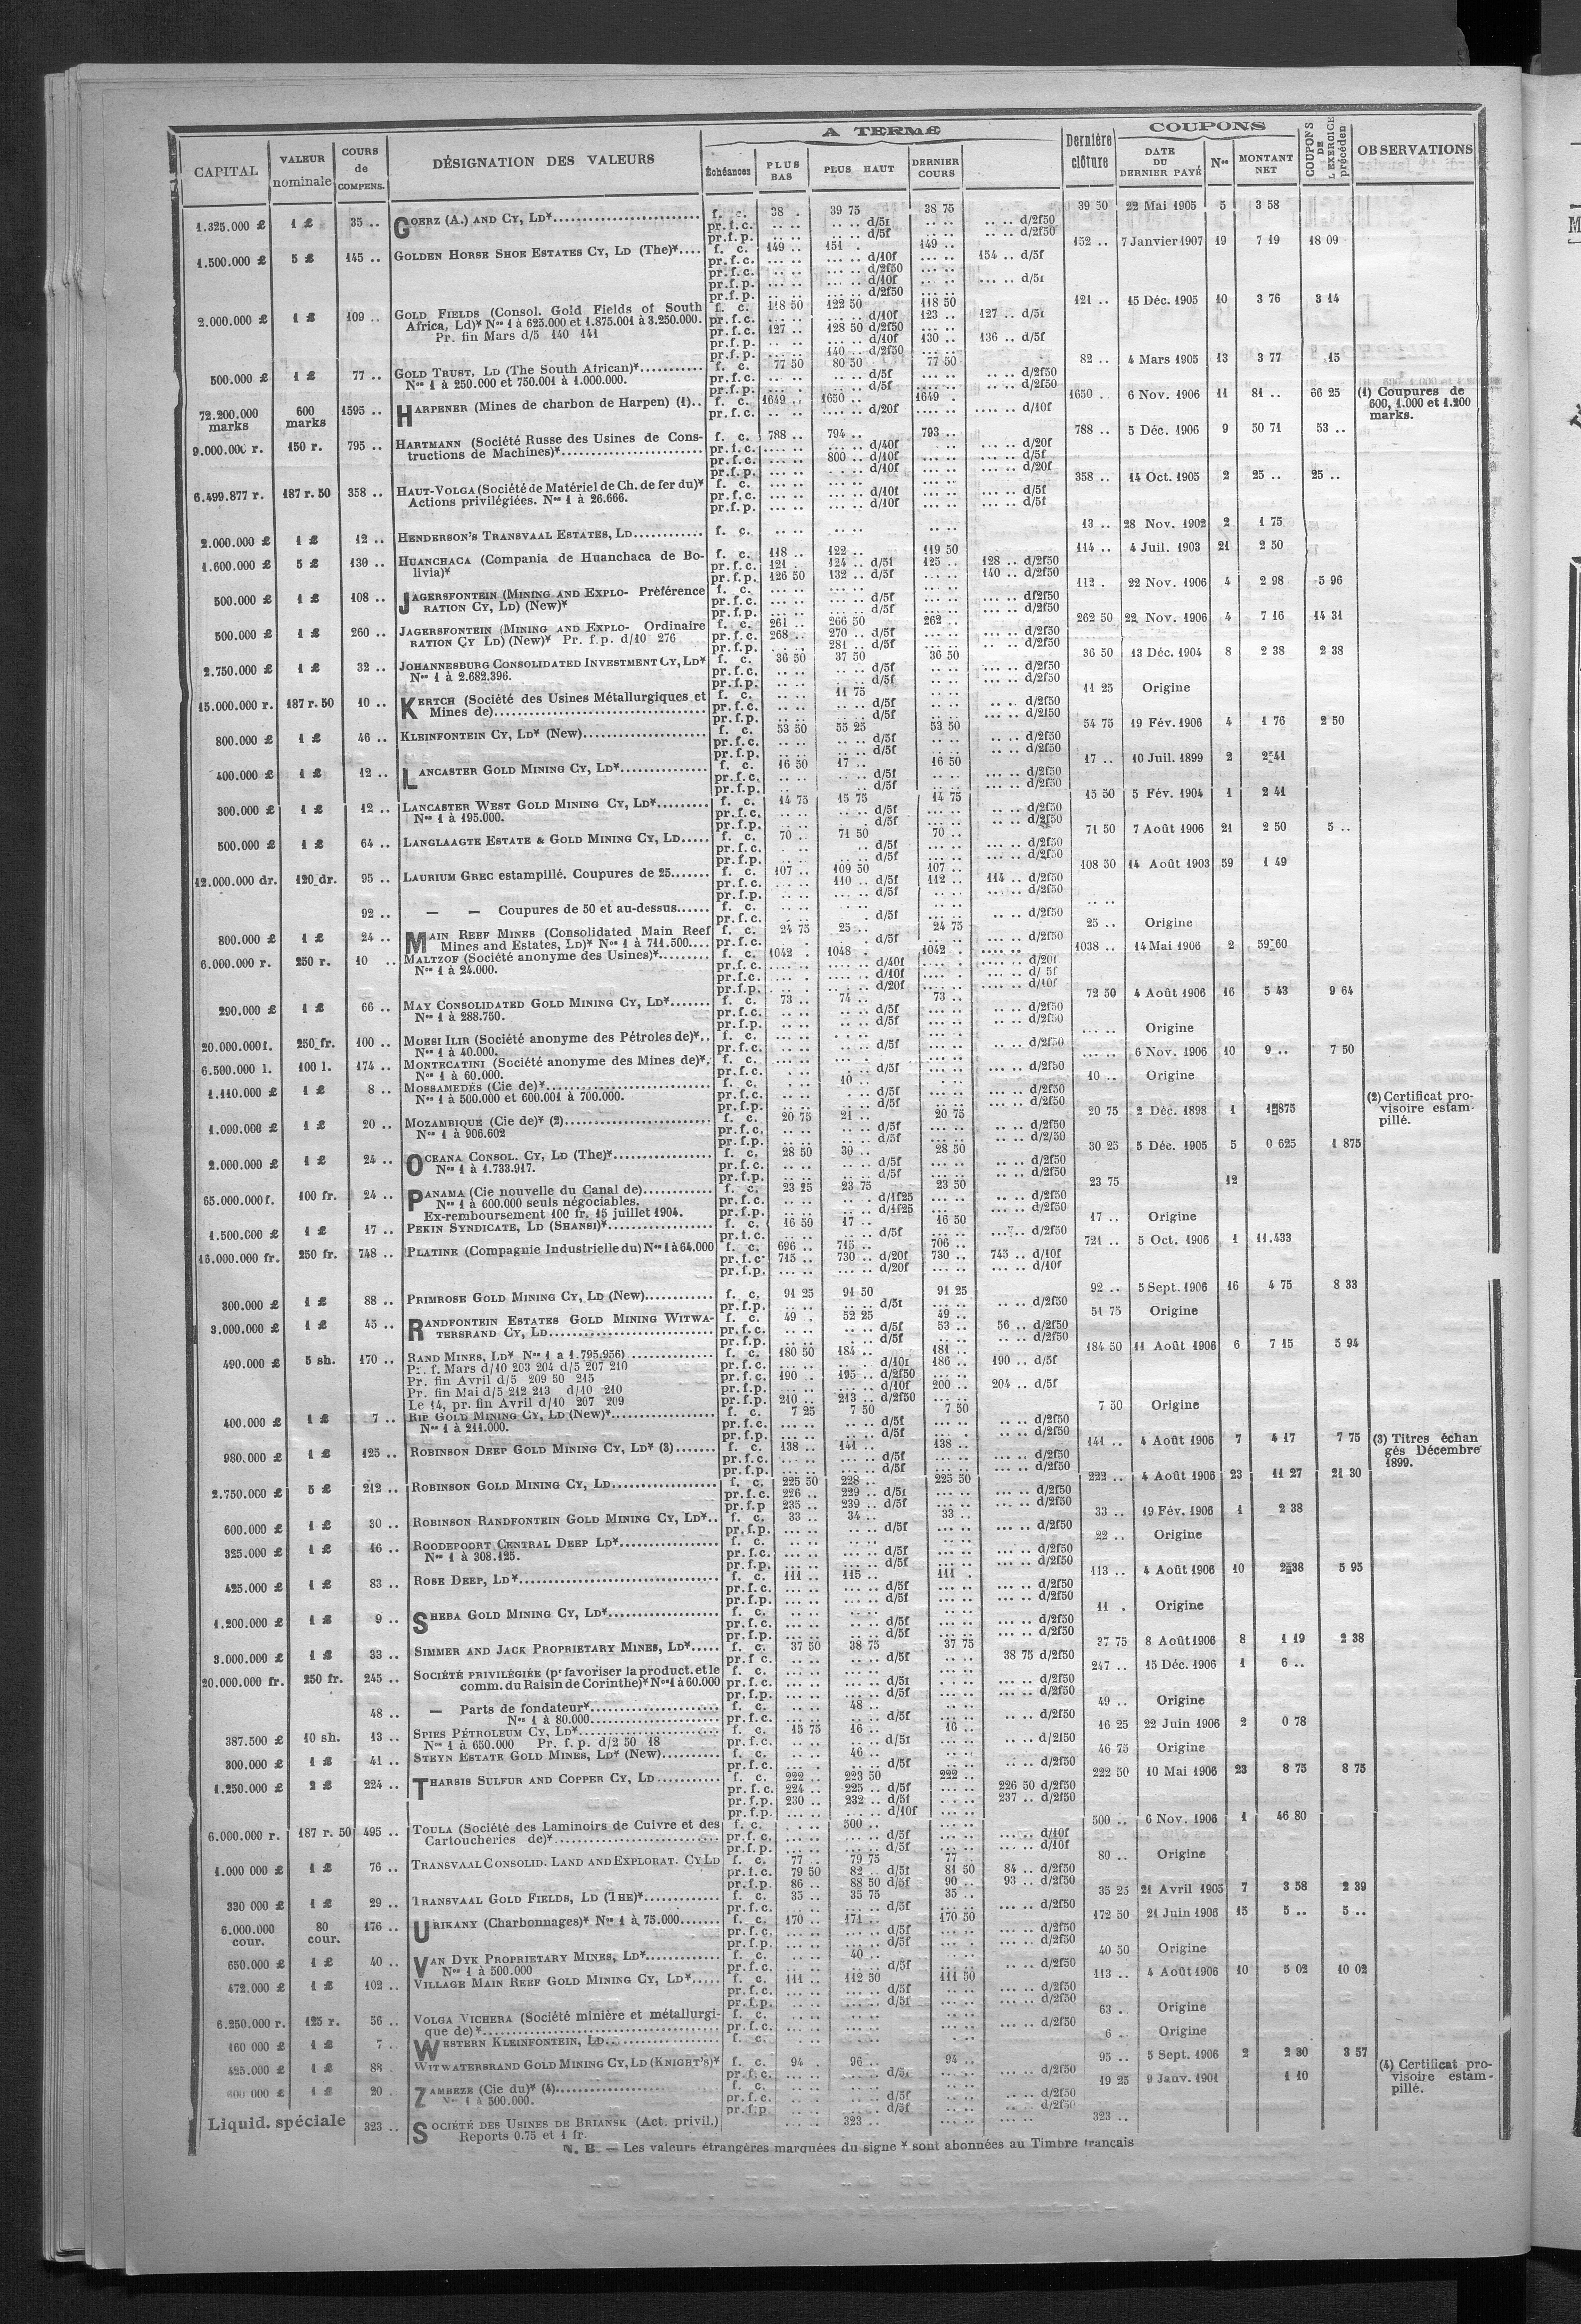 CAPITAL | VALEUR nominale | COURS de COMPENS. | DÉSIGNATION DES VALEURS | A TERME | Échéances | PLUS BAS | PLUS HAUT | DERNIER COURS | Dernière clôture | COUPONS | DATE DU DERNIER PAYÉ | Nos | MONTANT NET | COUPONS DE L'EXERCICE précéden | OBSERVATIONS
1.325.000 £ 1 £ 35 .. GOERZ (A.) AND CY, LD* f. c. 38 . 39 75 38 75 39 50 22 Mai 1905 5 3 58
pr.f.c. .. .. d/5f .. .. d/2f50
pr.f.p. .. .. d/5f .. .. d/2f50
1.500.000 £ 5 £ 145 .. GOLDEN HORSE SHOE ESTATES CY, LD (The)* f. c. 149 .. 151 . 149 .. 152 .. 7 Janvier 1907 19 7 19 18 09
pr.f.c. d/10f 154 .. d/5f
pr.f.c. d/2f50
pr.f.p. d/10f d/5f
pr.f.p. d/2f50
2.000.000 £ 1 £ 109 .. GOLD FIELDS (Consol. Gold Fields of South f. c. 118 50 122 50 118 50 121 .. 15 Déc. 1905 10 3 76 3 14
Africa, Ld)* Nos 1 à 625.000 et 1.875.001 à 3.250.000. pr.f.c. d/10f 123 .. 127 .. d/5f
Pr. fin Mars d/5 140 141 pr.f.c. 127 .. 128 50 d/2f50
pr.f.p. d/10f 130 .. 136 .. d/5f
pr.f.p. 140 .. d/2f50
500.000 £ 1 £ 77 .. GOLD TRUST, LD (The South African)* f. c. 77 50 80 50 77 50 82 .. 4 Mars 1905 13 3 77 15
Nos 1 à 250.000 et 750.001 à 1.000.000. pr.f.c. d/5f d/2f50
pr.f.p. d/5f d/2f50
72.200.000 marks 600 marks 1595 .. HARPENER (Mines de charbon de Harpen) (1).. f. c. 1649 .. 1650 .. 1649 . 1650 .. 6 Nov. 1906 11 81 .. 66 25 (1) Coupures de 600, 1.000 et 1.200 marks.
pr.f.c. d/20f d/10f
9.000.000 r. 150 r. 795 .. HARTMANN (Société Russe des Usines de Cons- f. c. 788 .. 794 .. 793 .. 788 .. 5 Déc. 1906 9 50 71 53 ..
tructions de Machines)* pr.f.c. d/40f d/20f
pr.f.c. 800 .. d/10f d/5f
pr.f.p. d/10f d/20f
6.499.877 r. 187 r. 50 358 .. HAUT-VOLGA (Société de Matériel de Ch. de fer du)* f. c. 358 .. 14 Oct. 1905 2 25 .. 25 ..
Actions privilégiées. Nos 1 à 26.666. pr.f.c. d/10f d/5f
pr.f.p. d/10f d/5f
2.000.000 £ 1 £ 12 .. HENDERSON'S TRANSVAAL ESTATES, LD f. c. 13 .. 28 Nov. 1902 2 1 75
1.600.000 £ 5 £ 130 .. HUANCHACA (Compania de Huanchaca de Bo- f. c. 118 .. 122 .. 119 50 114 .. 4 Juil. 1903 21 2 50
livia)* pr.f.c. 121 . 124 .. d/5f 125 .. 128 .. d/2f50
pr.f.p. 126 50 132 .. d/5f 140 .. d/2f50
500.000 £ 1 £ 108 .. JAGERSFONTEIN (MINING AND EXPLO- Préférence f. c. 112 . 22 Nov. 1906 4 2 98 5 96
RATION CY, LD) (New)* pr.f.c. d/5f df2f50
pr.f.p. d/5f d/2f50
500.000 £ 1 £ 260 .. JAGERSFONTEIN (MINING AND EXPLO- Ordinaire f. c. 261 .. 266 50 262 .. 262 50 22 Nov. 1906 4 7 16 14 31
RATION CY LD) (New)* Pr. f.p. d/10 276 pr.f.c. 268 .. 270 .. d/5f d/2f50
pr.f.p. 281 .. d/5f d/2f50
2.750.000 £ 1 £ 32 .. JOHANNESBURG CONSOLIDATED INVESTMENT CY, LD* f. c. 36 50 37 50 36 50 36 50 13 Déc. 1904 8 2 38 2 38
Nos 1 à 2.682.396. pr.f.c. d/5f d/2f50
pr.f.p. d/5f d/2f50
15.000.000 r. 187 r. 50 10 .. KERTCH (Société des Usines Métallurgiques et f. c. 11 75 11 25 Origine
Mines de) pr.f.c. d/5f d/2f50
pr.f.p. d/5f d/2f50
800.000 £ 1 £ 46 .. KLEINFONTEIN CY, LD* (New) f. c. 53 50 55 25 53 50 54 75 19 Fév. 1906 4 1 76 2 50
pr.f.c. d/5f d/2f50
pr.f.p. d/5f d/2f50
400.000 £ 1 £ 12 .. LANCASTER GOLD MINING CY, LD* f. c. 16 50 17 .. 16 50 17 .. 10 Juil. 1899 2 2 41
pr.f.c. d/5f d/2f50
pr.f.p. d/5f d/2f50
300.000 £ 1 £ 12 .. LANCASTER WEST GOLD MINING CY, LD* f. c. 14 75 15 75 14 75 15 50 5 Fév. 1904 1 2 41
Nos 1 à 195.000. pr.f.c. d/5f d/2f50
pr.f.p. d/5f d/2f50
500.000 £ 1 £ 64 .. LANGLAAGTE ESTATE & GOLD MINING CY, LD f. c. 70 .. 71 50 70 .. 71 50 7 Août 1906 21 2 50 5 ..
pr.f.c. d/5f d/2f50
pr.f.p. d/5f d/2f50
12.000.000 dr. 120 dr. 95 .. LAURIUM GREC estampillé. Coupures de 25 f. c. 107 .. 109 50 107 .. 108 50 14 Août 1903 59 1 49
pr.f.c. 110 .. d/5f 112 .. 114 .. d/2f50
pr.f.p. d/5f d/2f50
92 .. — — Coupures de 50 et au-dessus f. c.
pr.f.c. d/5f d/2f50
800.000 £ 1 £ 24 .. MAIN REEF MINES (Consolidated Main Reef f. c. 24 75 25 .. 24 75 25 .. Origine
Mines and Estates, LD)* Nos 1 à 711.500 pr.f.c. d/5f d/2f50
6.000.000 r. 250 r. 10 .. MALTZOF (Société anonyme des Usines)* f. c. 1042 . 1048 . 1042 . 1038 .. 14 Mai 1906 2 59 60
Nos 1 à 24.000. pr.f.c. d/40f d/20f
pr.f.c. d/10f d/ 5f
pr.f.p. d/20f d/10f
290.000 £ 1 £ 66 .. MAY CONSOLIDATED GOLD MINING CY, LD* f. c. 73 .. 74 .. 73 .. 72 50 4 Août 1906 16 5 43 9 64
Nos 1 à 288.750. pr.f.c. d/5f d/2f50
pr.f.p. d/5f d/2f50
20.000.000 f. 250 fr. 100 .. MOESI ILIR (Société anonyme des Pétroles de)* f. c. Origine
Nos 1 à 40.000. pr.f.c. d/5f d/2f50
6.500.000 l. 100 l. 174 .. MONTECATINI (Société anonyme des Mines de)* f. c. 6 Nov. 1906 10 9 .. 7 50
Nos 1 à 60.000. pr.f.c. d/5f d/2f50
1.110.000 £ 1 £ 8 .. MOSSAMEDÈS (Cie de)* f. c. 10 .. 10 .. Origine
Nos 1 à 500.000 et 600.001 à 700.000. pr.f.c. d/5f d/2f50
pr.f.p. d/5f d/2f50
1.000.000 £ 1 £ 20 .. MOZAMBIQUE (Cie de)* (2) f. c. 20 75 21 .. 20 75 20 75 2 Déc. 1898 1 1 875 (2) Certificat pro- visoire estam- pillé.
Nos 1 à 906.602 pr.f.c. d/5f d/2f50
pr.f.p. d/5f d/2/50
2.000.000 £ 1 £ 24 .. OCEANA CONSOL. CY, LD (The)* f. c. 28 50 30 .. 28 50 30 25 5 Déc. 1905 5 0 625 1 875
Nos 1 à 1.733.917. pr.f.c. d/5f d/2f50
pr.f.p. d/5f d/2f50
65.000.000 f. 100 fr. 24 .. PANAMA (Cie nouvelle du Canal de) f. c. 23 25 23 75 23 50 23 75 12
Nos 1 à 600.000 seuls négociables. pr.f.c. d/1f25 d/2f50
Ex-remboursement 100 fr. 15 juillet 1904. pr.f.p. d/1f25 d/2f50
1.500.000 £ 1 £ 17 .. PEKIN SYNDICATE, LD (SHANSI)* f. c. 16 50 17 .. 16 50 17 .. Origine
pr.f.c. d/5f d/2f50
16.000.000 fr. 250 fr. 748 .. PLATINE (Compagnie Industrielle du) Nos 1 à 64.000 f. c. 696 .. 715 .. 706 .. 721 .. 5 Oct. 1906 1 11.433
pr.f.c. 715 .. 730 .. d/20f 730 .. 745 .. d/10f
pr.f.p. d/20f d/10f
300.000 £ 1 £ 88 .. PRIMROSE GOLD MINING CY, LD (New) f. c. 91 25 91 50 91 25 92 .. 5 Sept. 1906 16 4 75 8 33
pr.f.p. d/5f d/2f50
3.000.000 £ 1 £ 45 .. RANDFONTEIN ESTATES GOLD MINING WITWA- f. c. 49 . 52 25 49 .. 51 75 Origine
TERSRAND CY, LD pr.f.c. d/5f 53 .. 56 .. d/2f50
pr.f.p. d/5f d/2f50
490.000 £ 5 sh. 170 .. RAND MINES, LD* Nos 1 a 1.795.956) f. c. 180 50 184 .. 181 .. 184 50 11 Août 1906 6 7 15 5 94
Pr. f. Mars d/10 203 204 d/5 207 210 pr.f.c. d/10f 186 .. 190 .. d/5f
Pr. fin Avril d/5 209 50 215 pr.f.c. 190 .. 195 .. d/2f50
Pr. fin Mai d/5 212 213 d/10 210 pr.f.p. d/10f 200 .. 204 .. d/5f
Le 14, pr. fin Avril d/10 207 209 pr.f.p. 210 .. 213 .. d/2f50
400.000 £ 1 £ 7 .. RIP GOLD MINING CY, LD (New)* f. c. 7 25 7 50 7 50 7 50 Origine
Nos 1 à 211.000. pr.f.c. d/5f d/2f50
pr.f.p. d/5f d/2f50
980.000 £ 1 £ 125 .. ROBINSON DEEP GOLD MINING CY, LD* (3) f. c. 138 .. 141 .. 138 .. 141 .. 4 Août 1906 7 4 17 7 75 (3) Titres échan gés Décembre 1899.
pr.f.c. d/5f d/2f50
pr.f.p. d/5f d/2f50
2.750.000 £ 5 £ 212 .. ROBINSON GOLD MINING CY, LD f. c. 225 50 228 .. 225 50 222 .. 4 Août 1906 23 11 27 21 30
pr.f.c. 226 .. 229 .. d/5f d/2f50
pr.f.p 235 .. 239 .. d/5f d/2f50
600.000 £ 1 £ 30 .. ROBINSON RANDFONTEIN GOLD MINING CY, LD* f. c. 33 .. 34 .. 33 .. 33 .. 19 Fév. 1906 1 2 38
pr.f.p. d/5f d/2f50
325.000 £ 1 £ 16 .. ROODEPOORT CENTRAL DEEP LD* f. c. 22 .. Origine
Nos 1 à 308.125. pr.f.c. d/5f d/2f50
pr.f.p. d/5f d/2f50
425.000 £ 1 £ 83 .. ROSE DEEP, LD* f. c. 111 .. 115 .. 111 . 113 .. 4 Août 1906 10 2 38 5 95
pr.f.c. d/5f d/2f50
pr.f.p. d/5f d/2f50
1.200.000 £ 1 £ 9 .. SHEBA GOLD MINING CY, LD* f. c. 11 . Origine
pr.f.c. d/5f d/2f50
pr.f.p. d/5f d/2f50
3.000.000 £ 1 £ 33 .. SIMMER AND JACK PROPRIETARY MINES, LD* f. c. 37 50 38 75 37 75 37 75 8 Août 1906 8 1 19 2 38
pr.f c. d/5f 38 75 d/2f50
20.000.000 fr. 250 fr. 245 .. SOCIÉTÉ PRIVILÉGIÉE (pr favoriser la product. et le f. c. 247 .. 15 Déc. 1906 1 6 ..
comm. du Raisin de Corinthe)* Nos 1 à 60.000 pr.f.c. d/5f d/2f50
pr.f.p. d/5f d/2f50
48 .. — Parts de fondateur* f. c. 48 .. 49 .. Origine
Nos 1 à 80.000 pr.f.c. d/5f d/2f50
387.500 £ 10 sh. 13 .. SPIES PÉTROLEUM CY, LD* f. c. 15 75 16 .. 16 .. 16 25 22 Juin 1906 2 0 78
Nos 1 à 650.000 Pr. f. p. d/2 50 18 pr.f.c. d/5f d/2f50
300.000 £ 1 £ 41 .. STEYN ESTATE GOLD MINES, LD* (New) f. c. 46 .. 46 75 Origine
pr.f.c. d/5f d/2f50
1.250.000 £ 2 £ 224 .. THARSIS SULFUR AND COPPER CY, LD f. c. 222 .. 223 50 222 .. 222 50 10 Mai 1906 23 8 75 8 75
pr.f.c. 224 .. 225 .. d/5f 226 50 d/2f50
pr.f.p. 230 .. 232 .. d/5f 237 .. d/2f50
pr.f.p. d/10f
6.000.000 r. 187 r. 50 495 .. TOULA (Société des Laminoirs de Cuivre et des f. c. 500 .. 500 .. 6 Nov. 1906 1 46 80
Cartoucheries de)* pr.f.c. d/5f d/10f
pr.f.p. d/5f d/10f
1.000 000 £ 1 £ 76 .. TRANSVAAL CONSOLID. LAND AND EXPLORAT. CY LD f. c. 77 . 79 75 77 . 80 .. Origine
pr.f.c. 79 50 82 .. d/5f 81 50 84 .. d/2f50
pr.f.p 86 .. 88 50 d/5f 90 .. 93 .. d/2f50
330 000 £ 1 £ 29 .. TRANSVAAL GOLD FIELDS, LD (THE)* f. c. 35 .. 35 75 35 .. 35 25 21 Avril 1905 7 3 58 2 39
pr.f.c. d/5f d/2f50
6.000.000 cour. 80 cour. 176 .. URIKANY (Charbonnages)* Nos 1 à 75.000 f. c. 170 .. 171 .. 170 50 172 50 21 Juin 1906 15 5 .. 5 ..
pr.f.c. d/5f d/2f50
pr.f.p. d/5f d/2f50
650.000 £ 1 £ 40 .. VAN DYK PROPRIETARY MINES, LD* f. c. 40 .. 40 50 Origine
Nos 1 à 500.000 pr.f.c. d/5f d/2f50
472.000 £ 1 £ 102 .. VILLAGE MAIN REEF GOLD MINING CY, LD* f. c. 111 .. 112 50 111 50 113 .. 4 Août 1906 10 5 02 10 02
pr.f.c. d/5f d/2f50
pr.f.p. d/5f d/2f50
6.250.000 r. 125 r. 56 .. VOLGA VICHERA (Société minière et métallurgi- f. c. 63 .. Origine
que de)* pr.f.c. d/2f50
160 000 £ 1 £ 7 .. WESTERN KLEINFONTEIN, LD f. c. 6 .. Origine
425.000 £ 1 £ 88 . WITWATERSRAND GOLD MINING CY, LD (KNIGHT'S)* f. c. 94 . 96 .. 94 .. 95 .. 5 Sept. 1906 2 2 30 3 57
pr.f.c. d/5f d/2f50
600 000 £ 1 £ 20 . ZAMBEZE (Cie du)* (4) f. c. 19 25 9 Janv. 1901 1 10 (4) Certificat pro- visoire estam- pillé.
Nos 1 à 500.000. pr.f.c. d/5f d/2f50
pr.f.p d/5f d/2f50
Liquid. spéciale 323 .. SOCIÉTÉ DES USINES DE BRIANSK (Act. privil.) 323 .. 323 ..
Reports 0.75 et 1 fr.
N. B. — Les valeurs étrangères marquées du signe * sont abonnées au Timbre français